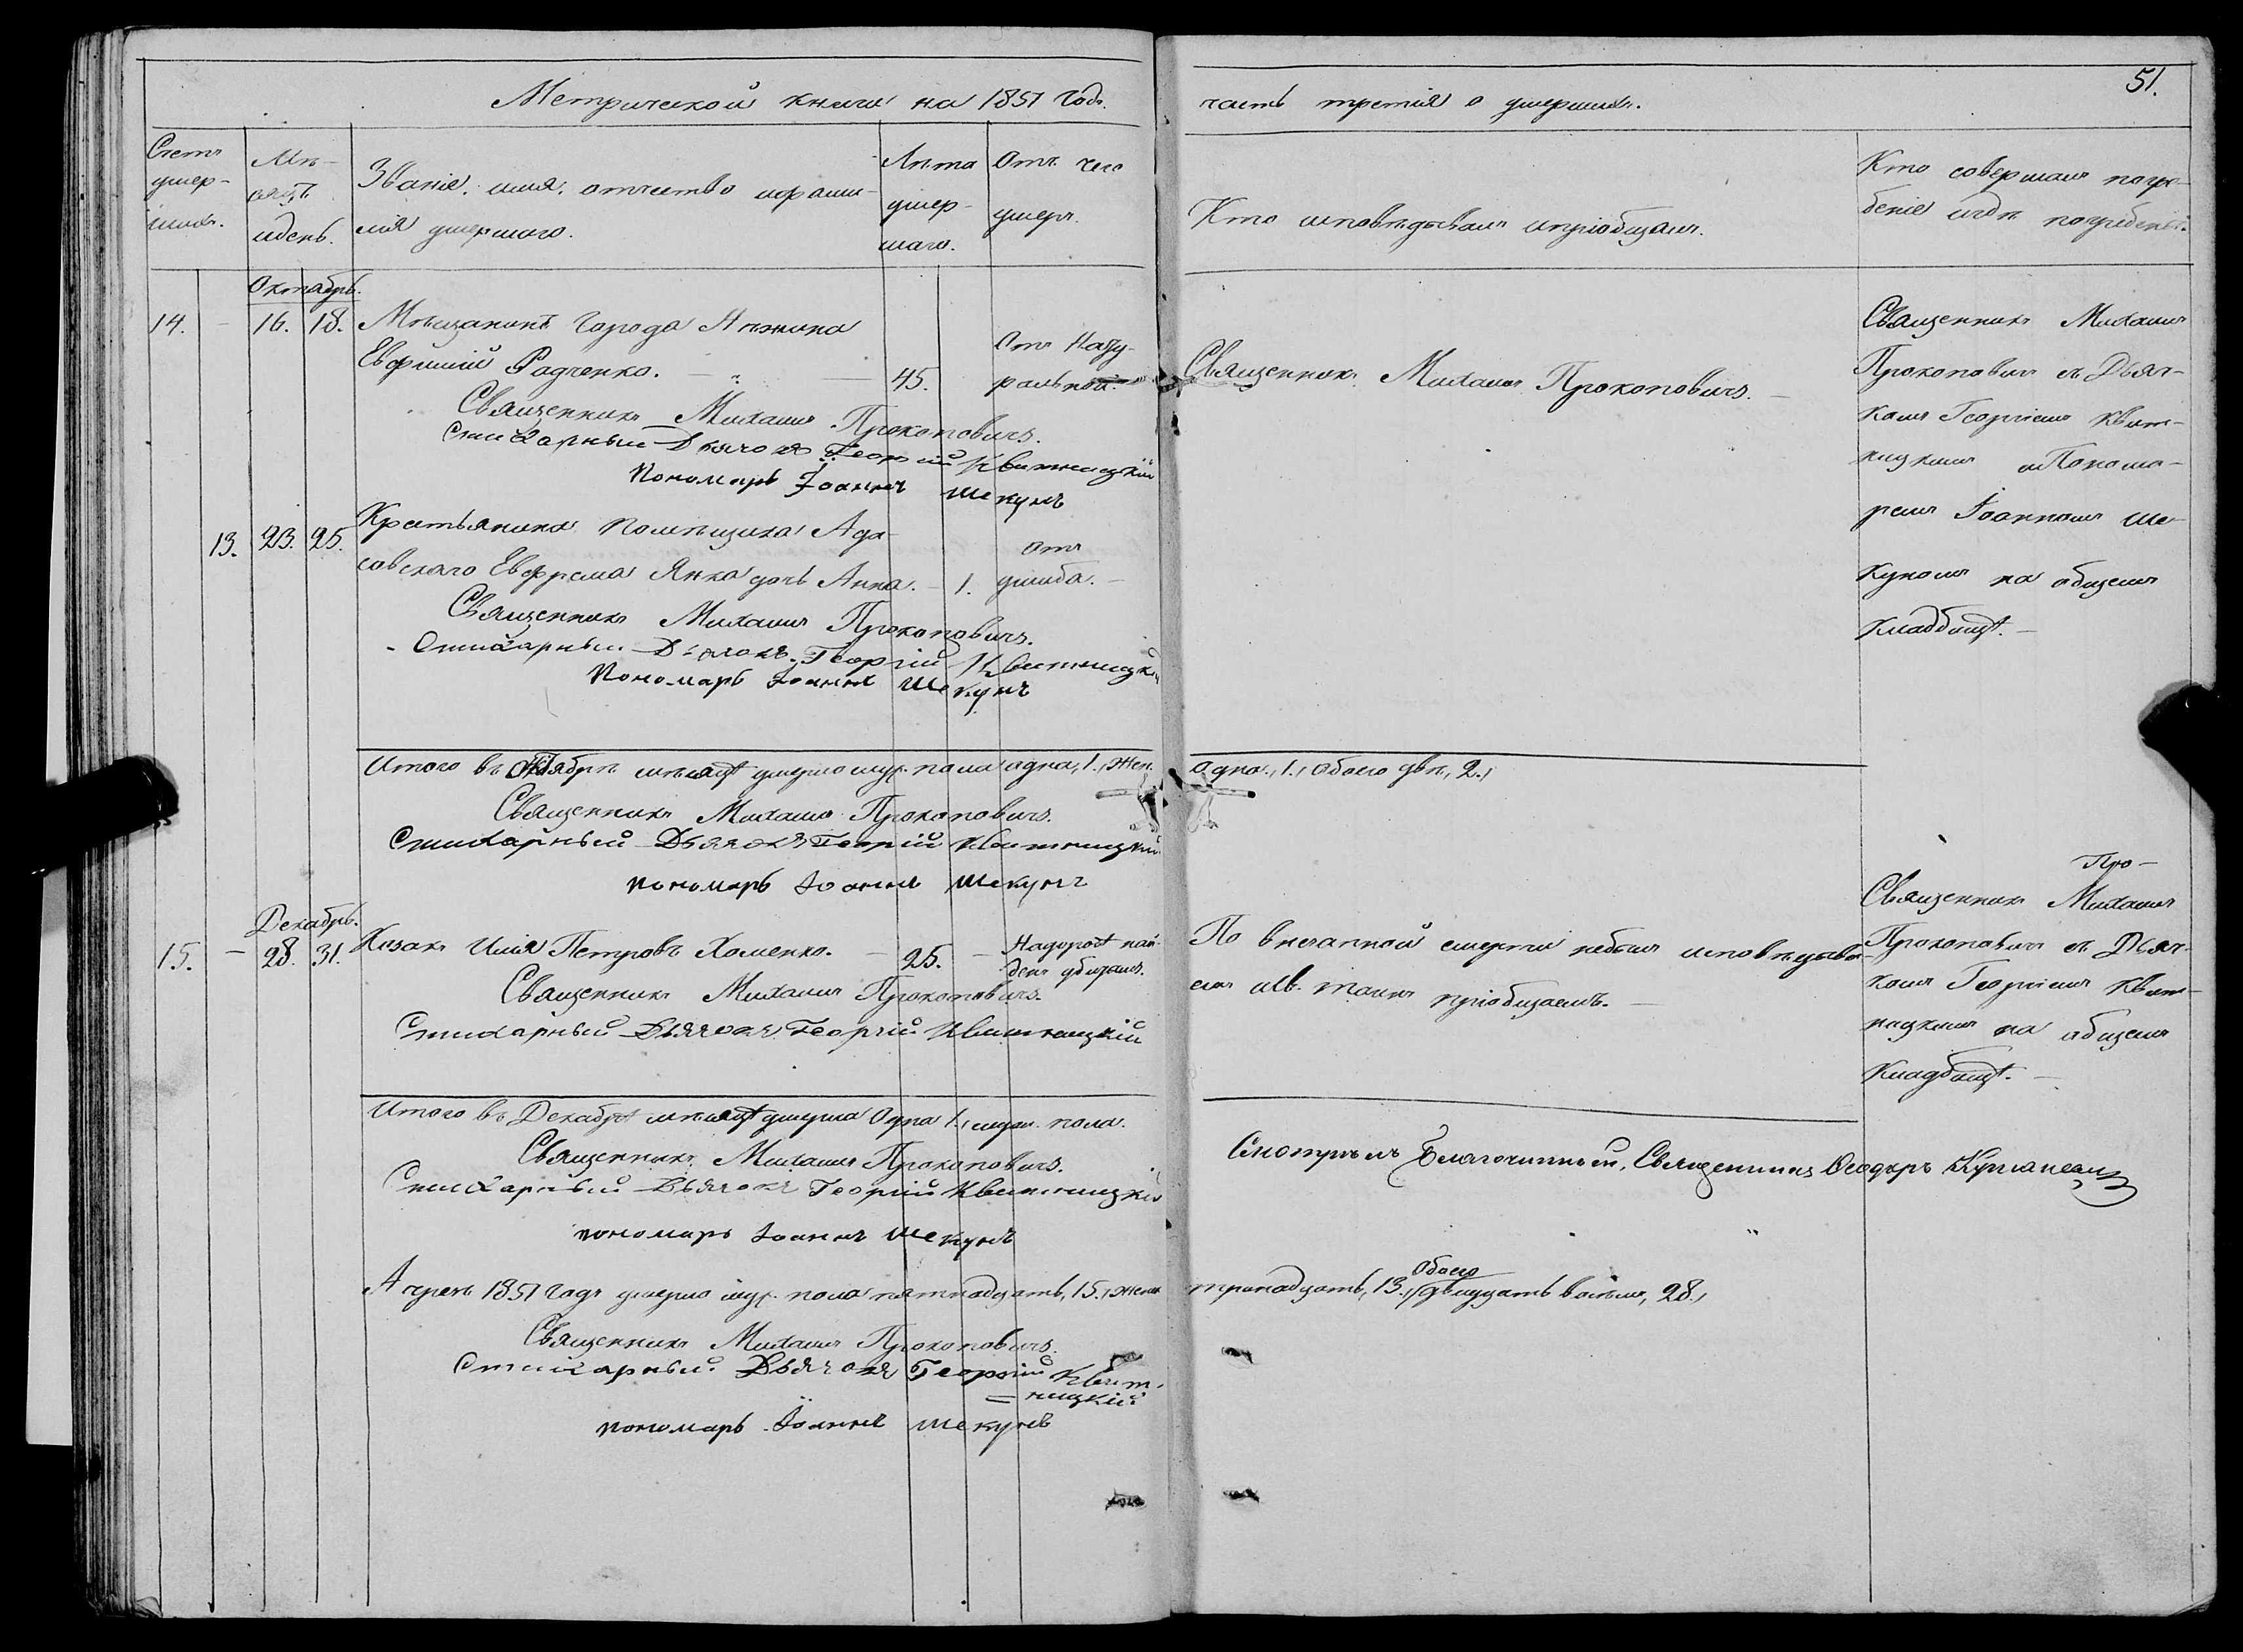 Метрической книги на 1851 годъ.
Счетъ умер-шихъ.
Мѣ-сяцъ и день.
Званіе, имя, отчество и фами-
лія умершаго.
Лѣта умер-шаго.
Отъ чего умеръ.
Октябрь.
14. - 16. 18. Мѣщанинъ города Нѣжина
Евфимій Радченко. - 45. Отъ Нату-
ральной.
Священникъ Михаилъ Прокоповичъ.
Стихарный Дьячокъ Георгій Квитницкій
Пономарь Іоаннъ Шекунъ
13. 23. 25. Крестьянина помѣщика Ада-
совскаго Евфрема Янка дочь Анна. - 1. отъ
ушиба. -
Священникъ Михаилъ Прокоповичъ.
Стихарный Дьячокъ Георгій Квитницкій
Пономарь Іоаннъ Шекунъ
Итого въ Октябрѣ мѣсяцѣ умерло муж. пола одна, 1., жен.
Священникъ Михаилъ Прокоповичъ.
Стихарный Дьячокъ Георгій Квитницкій
пономарь Іоаннъ Шекунъ
Декабрь.
15. - 28. 31. Козакъ Илія Петровъ Хоменко. - 25. - На дорогѣ най-
денъ убитымъ.
Священникъ Михаилъ Прокоповичъ.
Стихарный Дьячокъ Георгій Квитницкій
Итого въ Декабрѣ мѣсяцѣ умерла Одна 1., муж. пола.
Священникъ Михаилъ Прокоповичъ.
Стихарный Дьячокъ Георгій Квитницкій
пономарь Іоаннъ Шекунъ
А чрезъ 1851 годъ умерло муж. пола пятнадцать, 15., жен.
Священникъ Михаилъ Прокоповичъ.
Стихарный Дьячокъ Георгій Квит-
= ницкій
пономарь Іоаннъ Шекунъ
51.
часть третія о умершихъ.
Кто исповѣдывалъ и пріобщалъ.
Кто совершалъ погре-
беніе и гдѣ погребены.
Священникъ Михаилъ Прокоповичъ. -
Священникъ Михаилъ
Прокоповичъ съ Дьяч-
комъ Георгіемъ Квит-
ницкимъ и Понома-
ремъ Іоанномъ Ше-
куномъ на общемъ
Кладбищѣ. -
одна, 1., обоего двѣ, 2.,
По внезапной смерти небылъ исповѣдыва-
емъ и св. таинъ пріобщаемъ. -
Про-
Священникъ Михаилъ
Прокоповичъ съ Дьяч-
комъ Георгіемъ Квит-
ницкимъ на общемъ
Кладбищѣ. -
Смотрѣлъ Благочинный, Священникъ Ѳеодоръ
Обоего
тринадцать, 13., двадцать восемь, 28.,